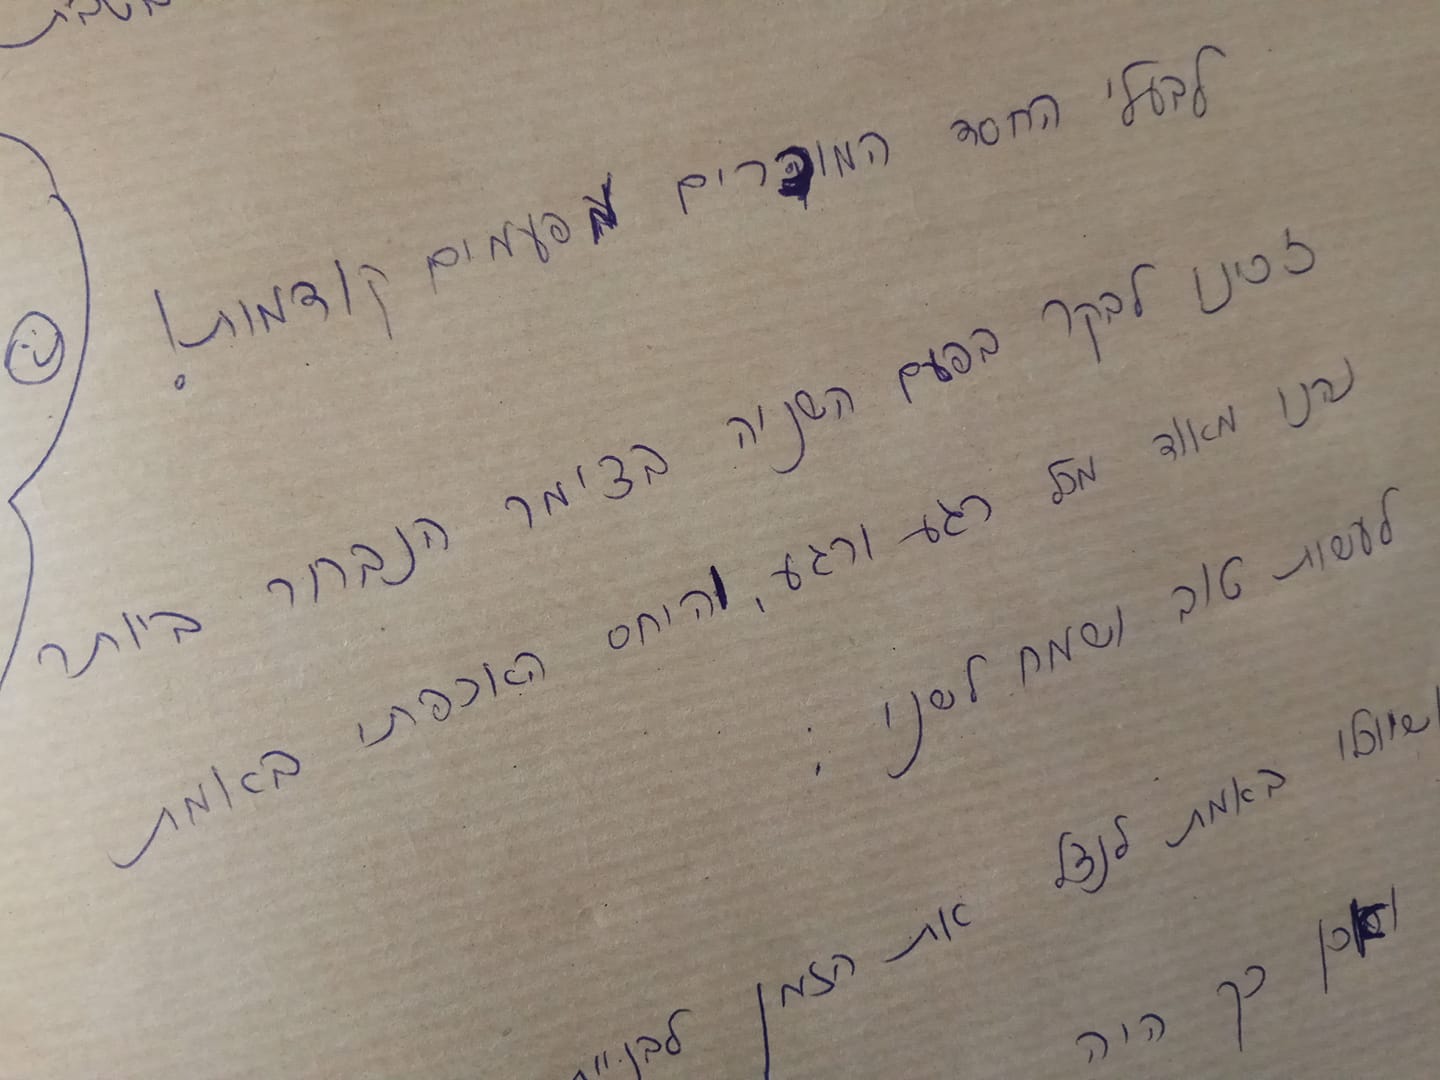 לבעלי החסד המוכרים מפעמים קודמות!
זכינו לבקר בפעם השניה בצימר הנבחר ביותר
נהנו מאוד מכל רגע ורגע, והיחס האוכפתי באמת
לעשות טוב ושמח לשני ;
ושיוכלו באמת לנצל את הזמן
וכן כך היה